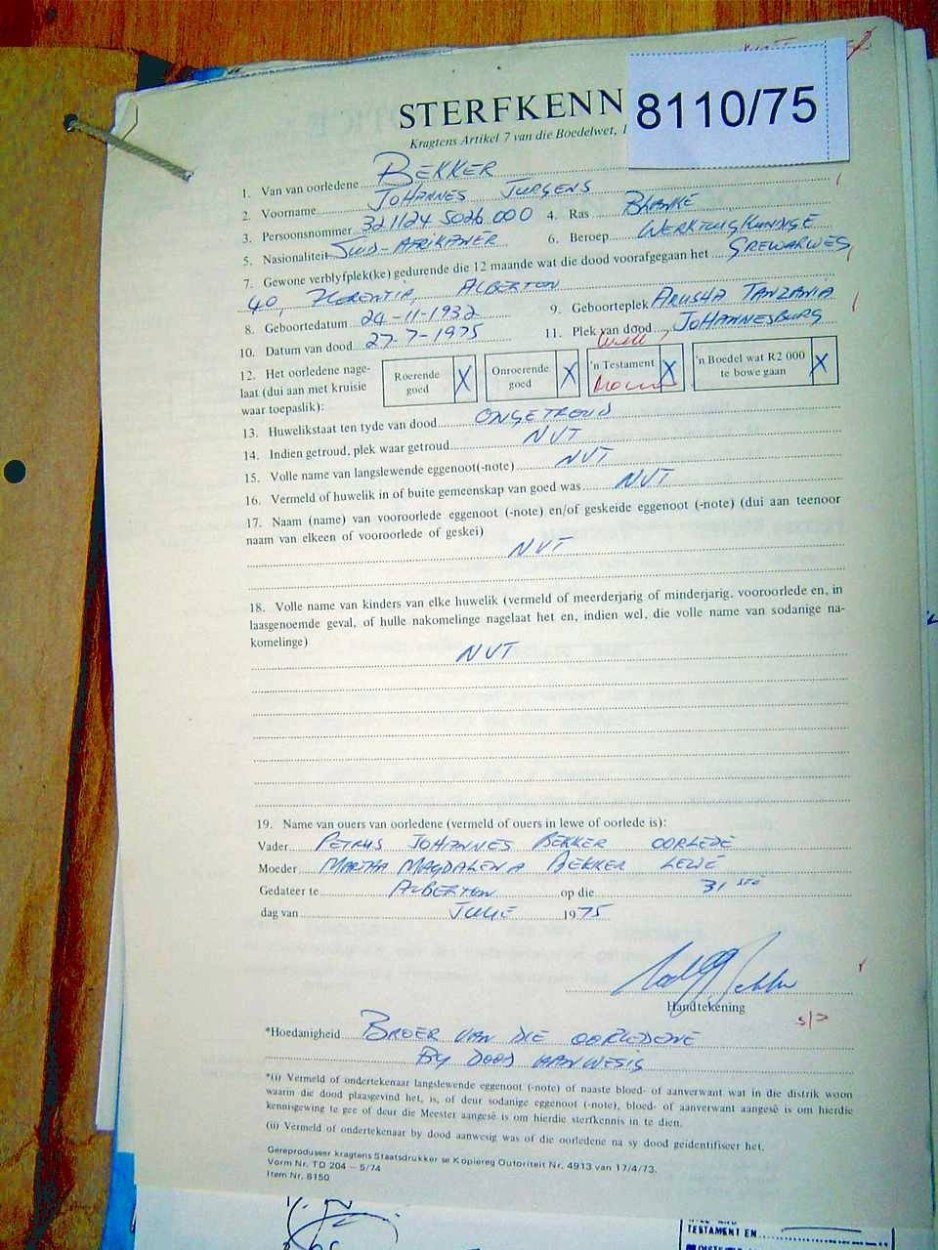 STERFKENN
8110/75
Kragtens Artikel 7 van die Boedelwet, 1
1. Van van oorledene BEKKER
2. Voorname JOHANNES JURGENS
3. Persoonsnommer 321124 5026 000 4. Ras BLANKE
5. Nasionaliteit SUID-AFRIKANER 6. Beroep WERKTUIGKUNDIGE
7. Gewone verblyfplek(ke) gedurende die 12 maande wat die dood voorafgegaan het GREWARWEG
40, FLORENTIA, ALBERTON
8. Geboortedatum 24-11-1932 9. Geboorteplek ARUSHA TANZANIA
10. Datum van dood 27-7-1975 11. Plek van dood JOHANNESBURG
12. Het oorledene nage-
laat (dui aan met kruisie
waar toepaslik):
Roerende goed X
Onroerende goed X
'n Testament X
'n Boedel wat R2 000 te bowe gaan X
13. Huwelikstaat ten tyde van dood ONGETROUD
14. Indien getroud, plek waar getroud NVT
15. Volle name van langslewende eggenoot(-note) NVT
16. Vermeld of huwelik in of buite gemeenskap van goed was NVT
17. Naam (name) van vooroorlede eggenoot (-note) en/of geskeide eggenoot (-note) (dui aan teenoor
naam van elkeen of vooroorlede of geskei)
NVT
18. Volle name van kinders van elke huwelik (vermeld of meerderjarig of minderjarig, vooroorlede en, in
laasgenoemde geval, of hulle nakomelinge nagelaat het en, indien wel, die volle name van sodanige na-
komelinge)
NVT
19. Name van ouers van oorledene (vermeld of ouers in lewe of oorlede is):
Vader PETRUS JOHANNES BEKKER OORLEDE
Moeder MARTHA MAGDALENA BEKKER LEWE
Gedateer te ALBERTON op die 31 STE
dag van JULIE 1975
Handtekening
*Hoedanigheid BROER VAN DIE OORLEDENE
BY DOOD AANWESIG
*(i) Vermeld of ondertekenaar langslewende eggenoot (-note) of naaste bloed- of aanverwant wat in die distrik woon
waarin die dood plaasgevind het, is, of deur sodanige eggenoot (-note), bloed- of aanverwant aangesê is om hierdie
kennisgewing te gee of deur die Meester aangesê is om hierdie sterfkennis in te dien.
(ii) Vermeld of ondertekenaar by dood aanwesig was of die oorledene na sy dood geidentifiseer het.
Gereproduseer kragtens Staatsdrukker se Kopiereg Outoriteit Nr. 4913 van 17/4/73.
Vorm Nr. TD 204 – 5/74
Item Nr. 8150
TESTAMENT EN